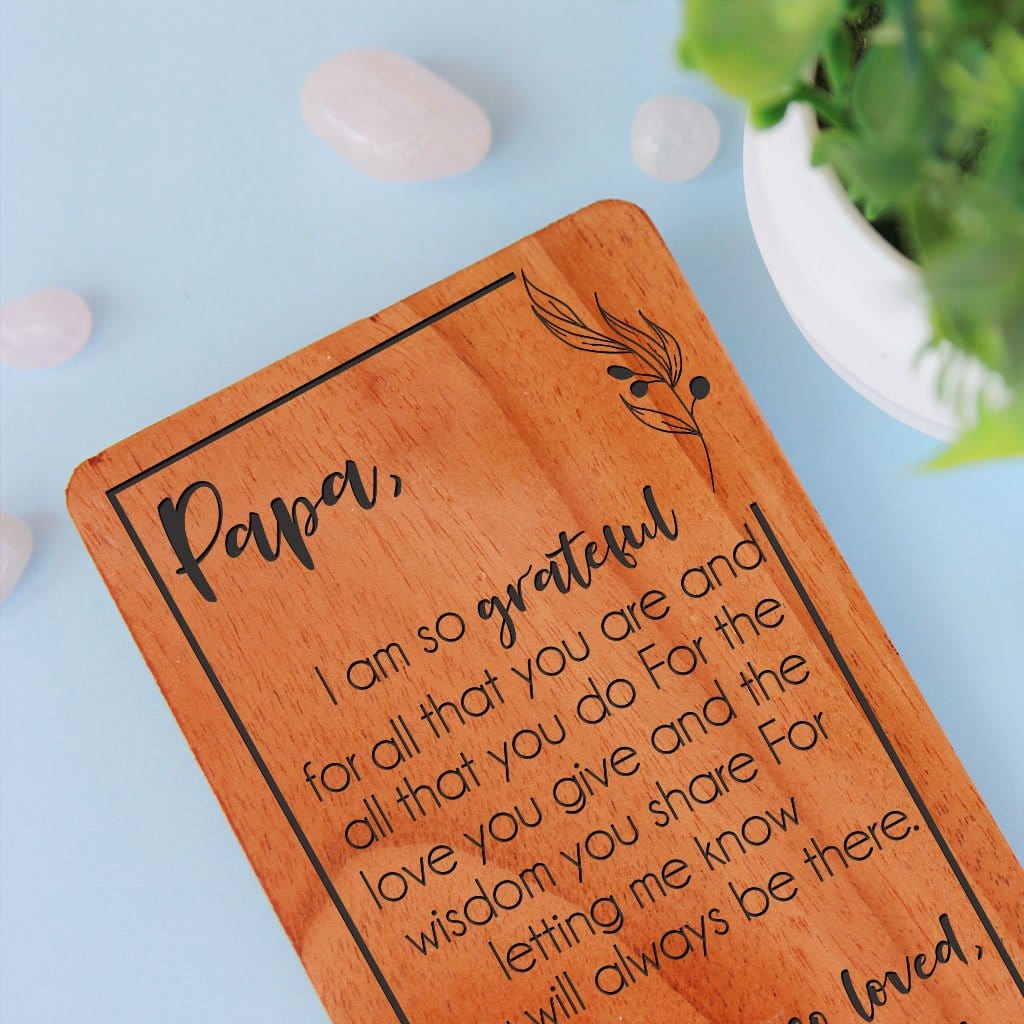 Papa,
I am so grateful
for all that you are and
all that you do For the
love you give and the
wisdom you share For
letting me know
will always be there.
so loved,